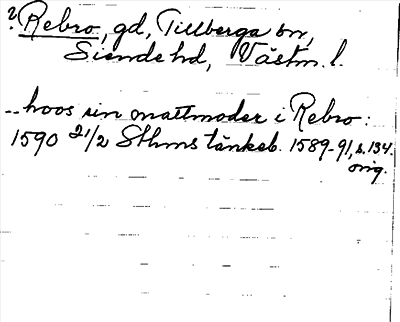 ? Rebro, gd, Tillberga sn,
Siende hd, Västm. l.
-- hoos sin mattmoder i Rebro:
1590 21/2 Sthms tänkeb. 1589-91, s. 134.
orig.